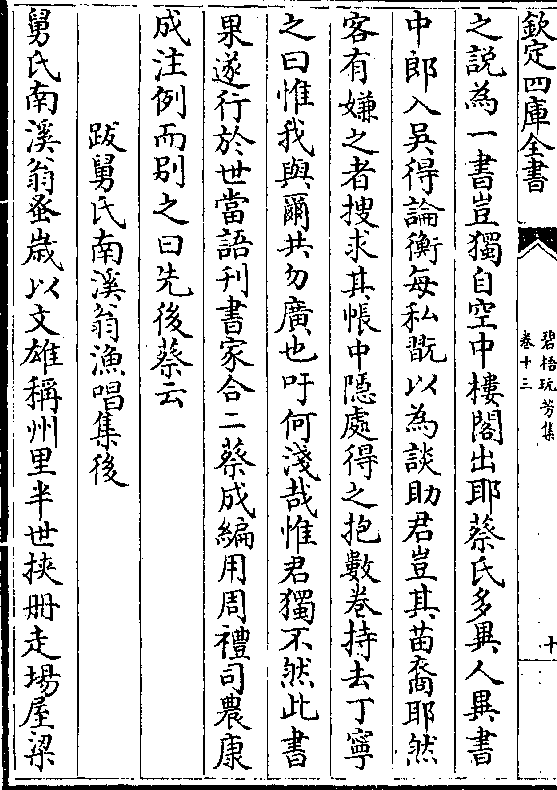 欽定四庫全書
碧梧玩芳集
卷十三
十
之說為一書豈獨自空中樓閣出耶蔡氏多異人異書
中郎入吳得論衡每私翫以為談助君豈其苗裔耶然
客有嫌之者搜求其帳中隱處得之抱數卷持去丁寧
之曰惟我與爾共勿廣也吁何淺哉惟君獨不然此書
果遂行於世當語刊書家合二蔡成編用周禮司農康
成注例而别之曰先後蔡云
跋舅氏南溪翁漁唱集後
舅氏南溪翁蚤歲以文雄稱州里半世挾冊走場屋梁